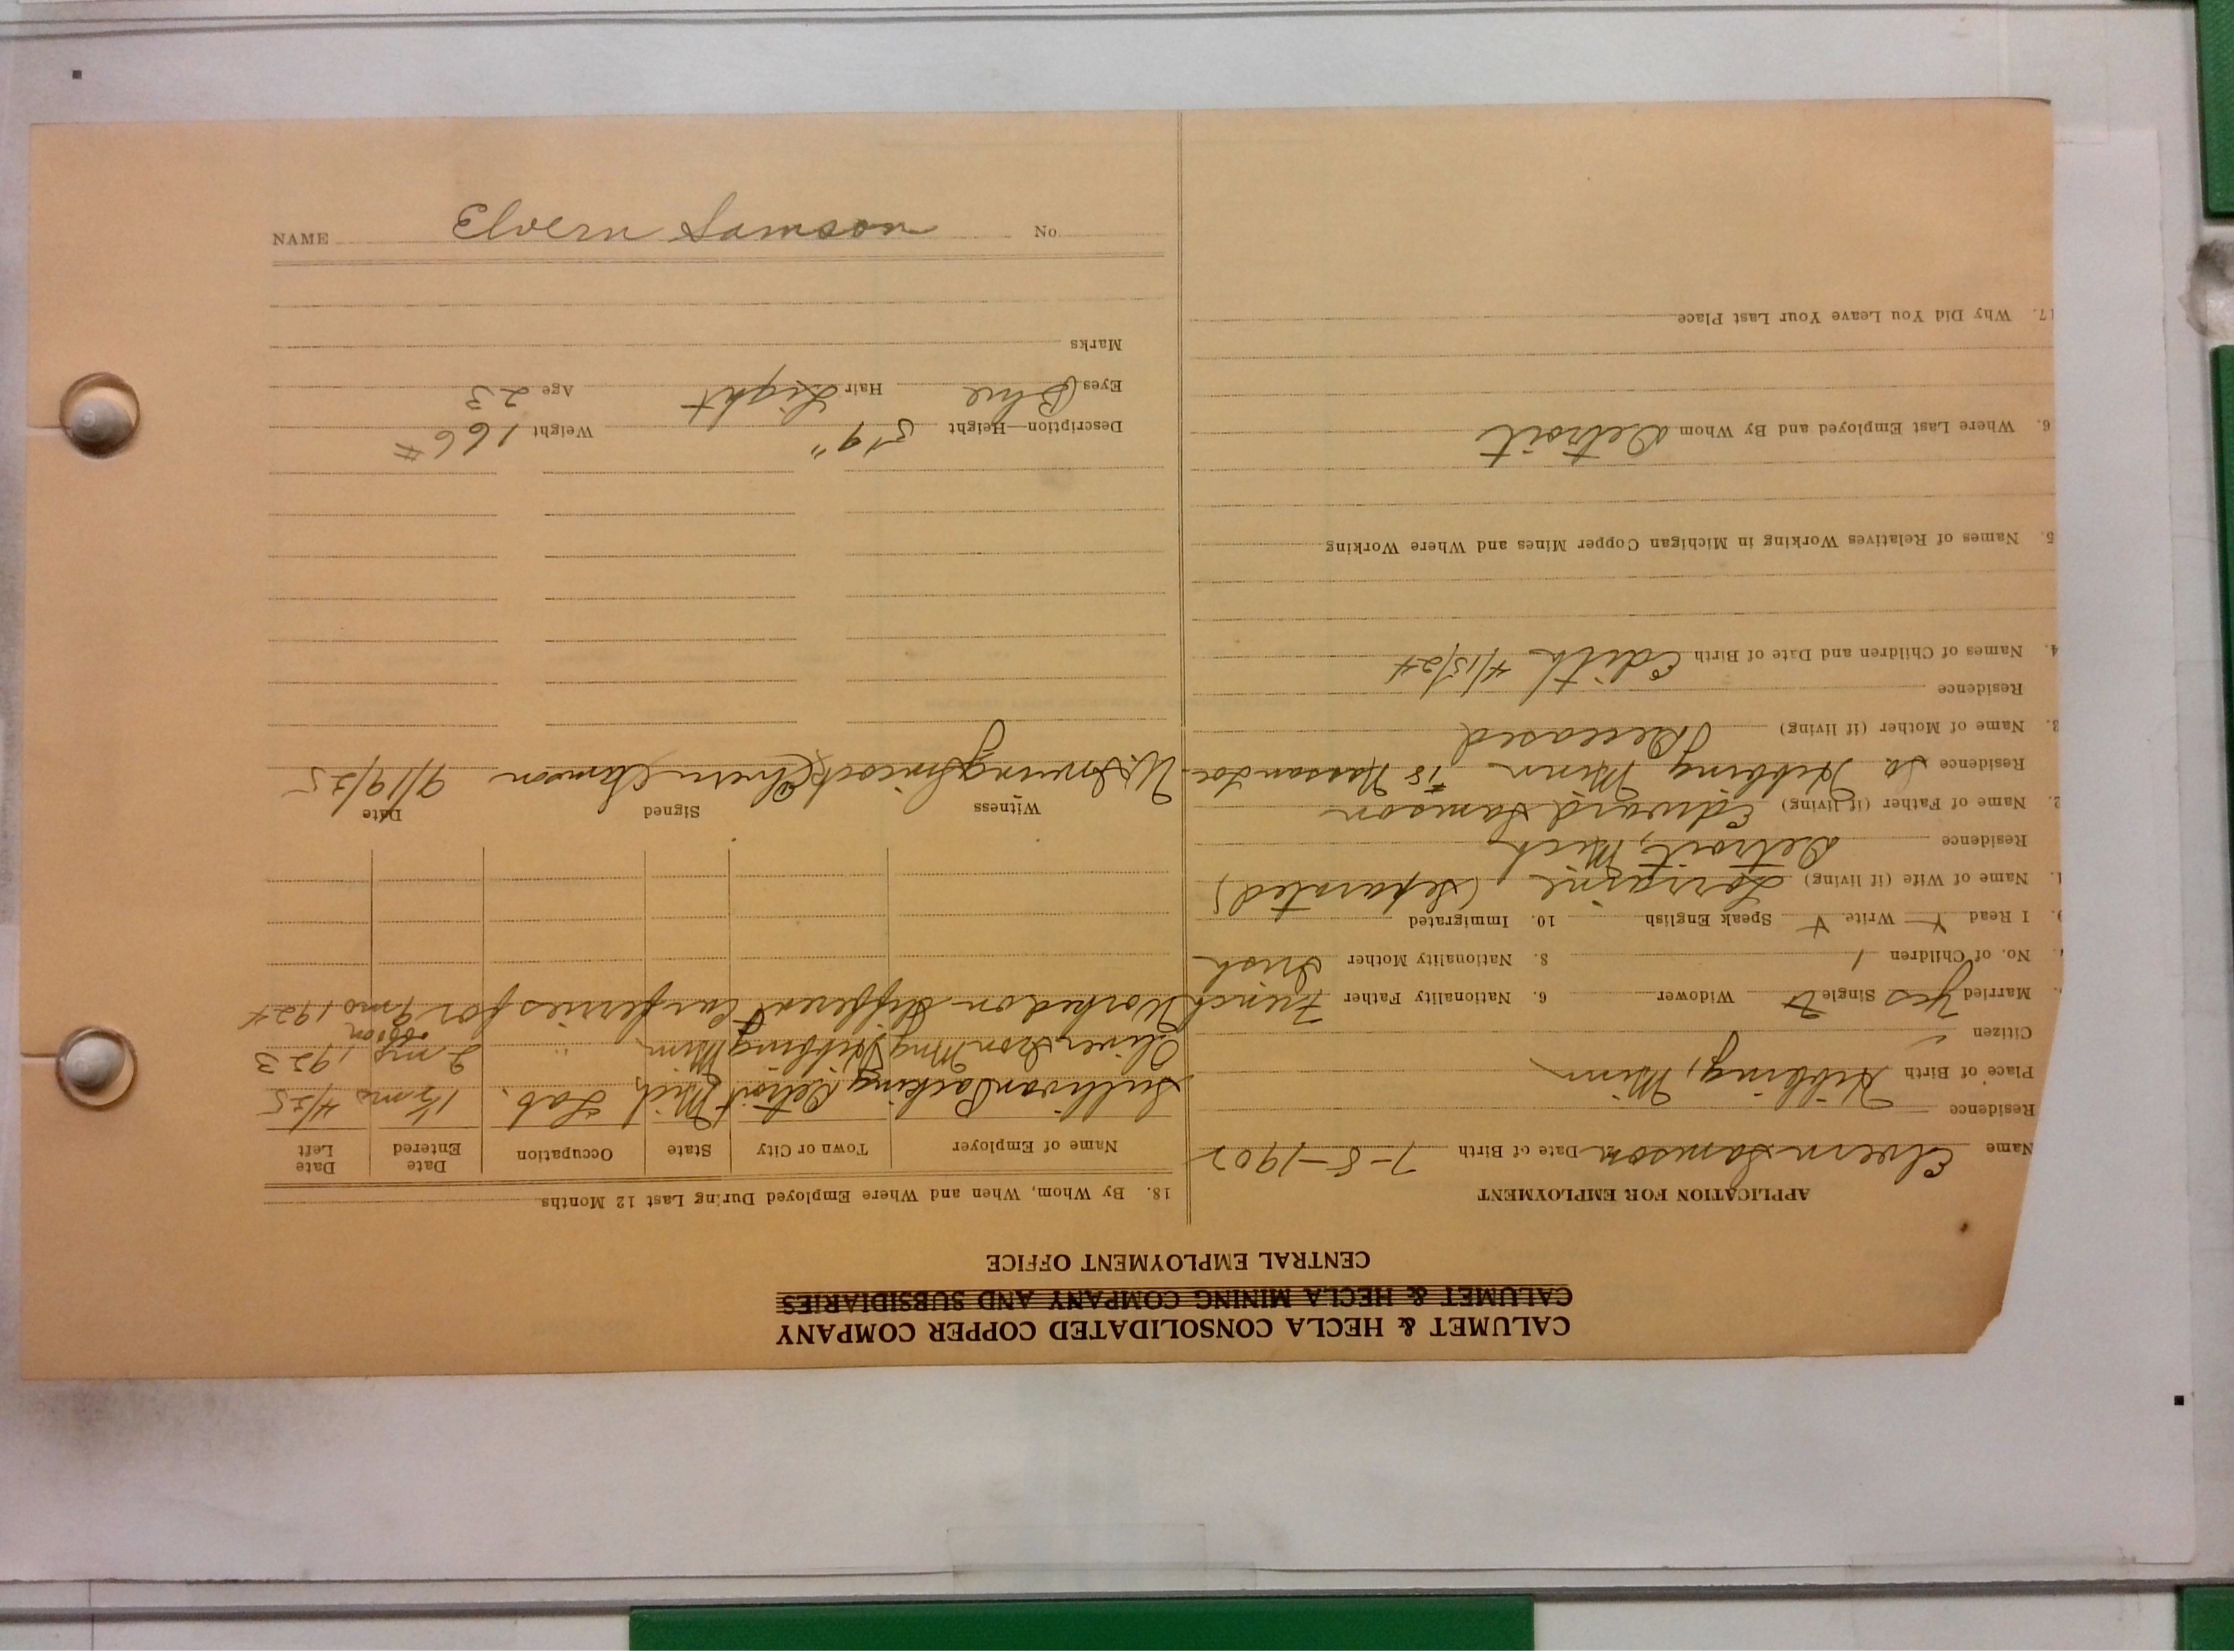 CALUMET & HECLA CONSOLIDATED COPPER COMPANY
CALUMET & HECLA MINING COMPANY AND SUBSIDIARIES
CENTRAL EMPLOYMENT OFFICE
APPLICATION FOR EMPLOYMENT
Name Elvern Samson Date of Birth 7-8-1902
Residence
Place of Birth Hibbing, Minn
Citizen
Married Yes Single Widower 6. Nationality Father French
No. of Children 1 8. Nationality Mother Irish
9. I Read Y Write Y Speak English 10. Immigrated
1. Name of Wife (if living) Lorraine (Separated)
Residence Detroit, Mich
2. Name of Father (if living) Edward Samson
Residence So Hibbing Minn #18 Nassau Loc.
3. Name of Mother (if living) Deceased
Residence
4. Names of Children and Date of Birth Edith 4/15/24
5. Names of Relatives Working in Michigan Copper Mines and Where Working
6. Where Last Employed and By Whom Detroit
17. Why Did You Leave Your Last Place
18. By Whom, When and Where Employed During Last 12 Months
Name of Employer Town or City State Occupation Date Entered Date Left
Sullivan Packing Detroit Mich Lab. 1½ mo 4/25
Oliver Iron Mng Hibbing Minn " 2 mo 1923
Worked on different Car ferries for 9 mo 1924
Witness Signed Date
Elvern Samson 9/19/25
Description—Height 5'9" Weight 166#
Eyes Blue Hair Light Age 23
Marks
NAME Elvern Samson No.